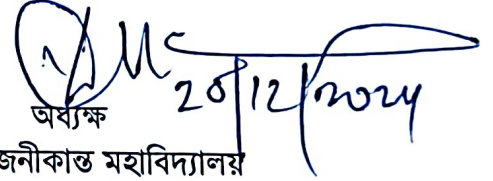 20/12/2024
অধ্যক্ষ
জনীকান্ত মহাবিদ্যালয়